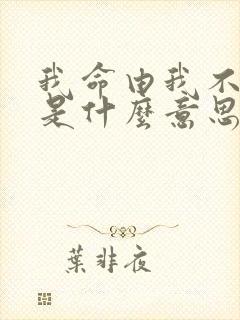 我命由我不
是什麼意思
葉非夜